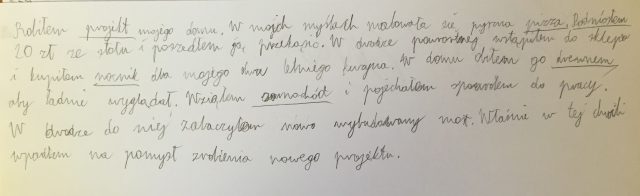 Robiłem projekt mojego domu. W moich myślach malowała się pyszna pizza. Podniosłem
20 zł ze stołu i poszedłem ją przekąsić. W drodze powrotnej wstąpiłem do sklepu
i kupiłem nocnik dla mojego dwu letniego kuzyna. W domu obiłem go drewnem,
aby ładnie wyglądał. Wziąłem samochód i pojechałem z powrotem do pracy.
W drodze do niej zobaczyłem nowo wybudowany most. Właśnie w tej chwili
wpadłem na pomysł zrobienia nowego projektu.